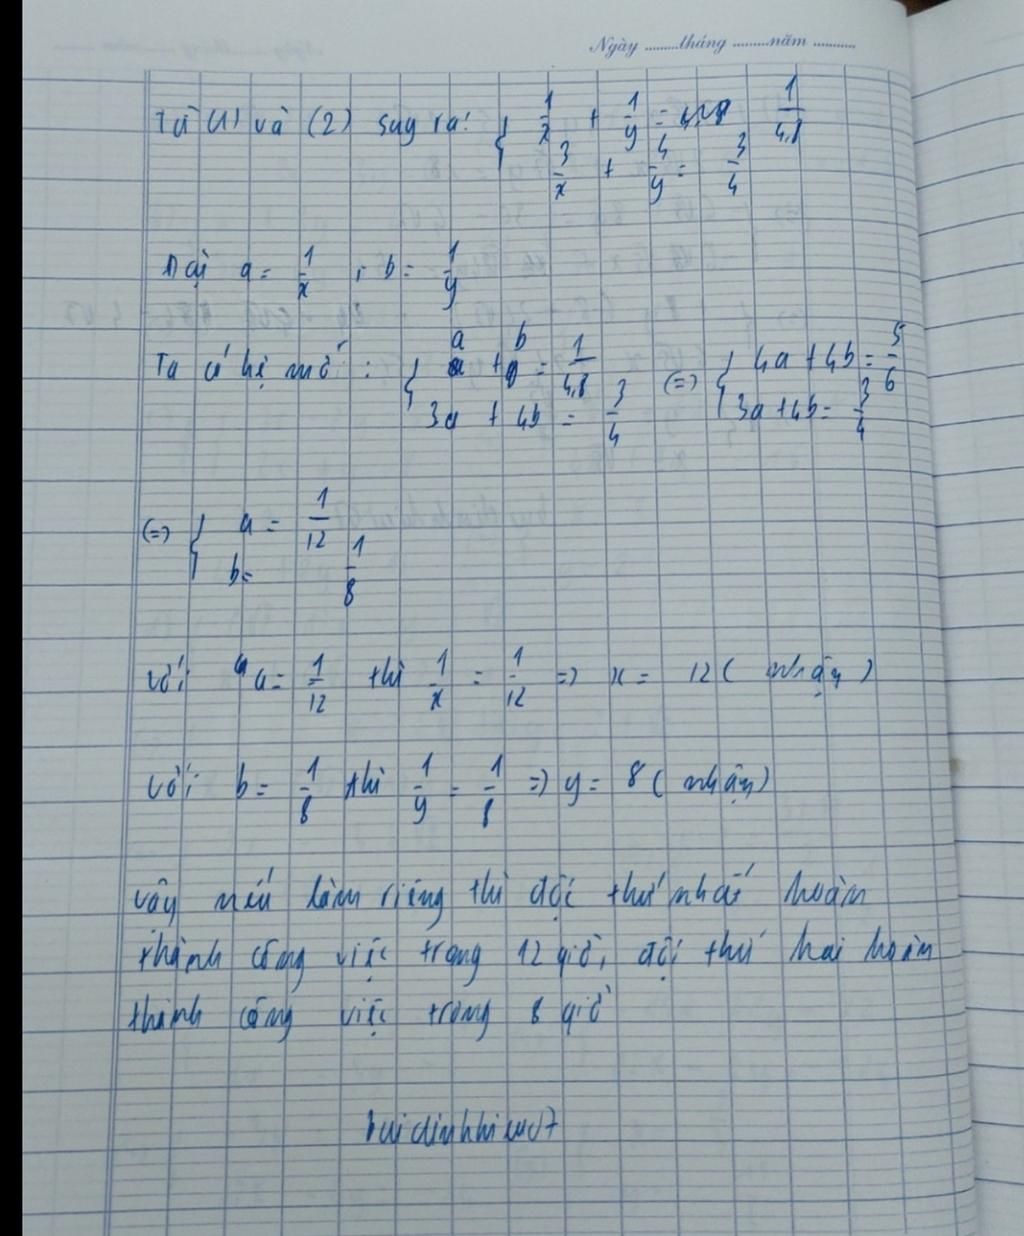 Ngày ........tháng ........năm ..........
Từ (1) và (2) suy ra: { 1/x + 1/y = 1/4,8
3/x + 4/y = 3/4
Đặt a = 1/x , b = 1/y
Ta có hệ mới : { a + b = 1/4,8 (=) { 4a + 4b = 5/6
3a + 4b = 3/4 3a + 4b = 3/4
(=) { a = 1/12
b = 1/8
với a = 1/12 thì 1/x = 1/12 => x = 12 ( nhận )
với b = 1/8 thì 1/y = 1/8 => y = 8 ( nhận)
vậy nếu làm riêng thì đội thứ nhất hoàn
thành công việc trong 12 giờ, đội thứ hai hoàn
thành công việc trong 8 giờ